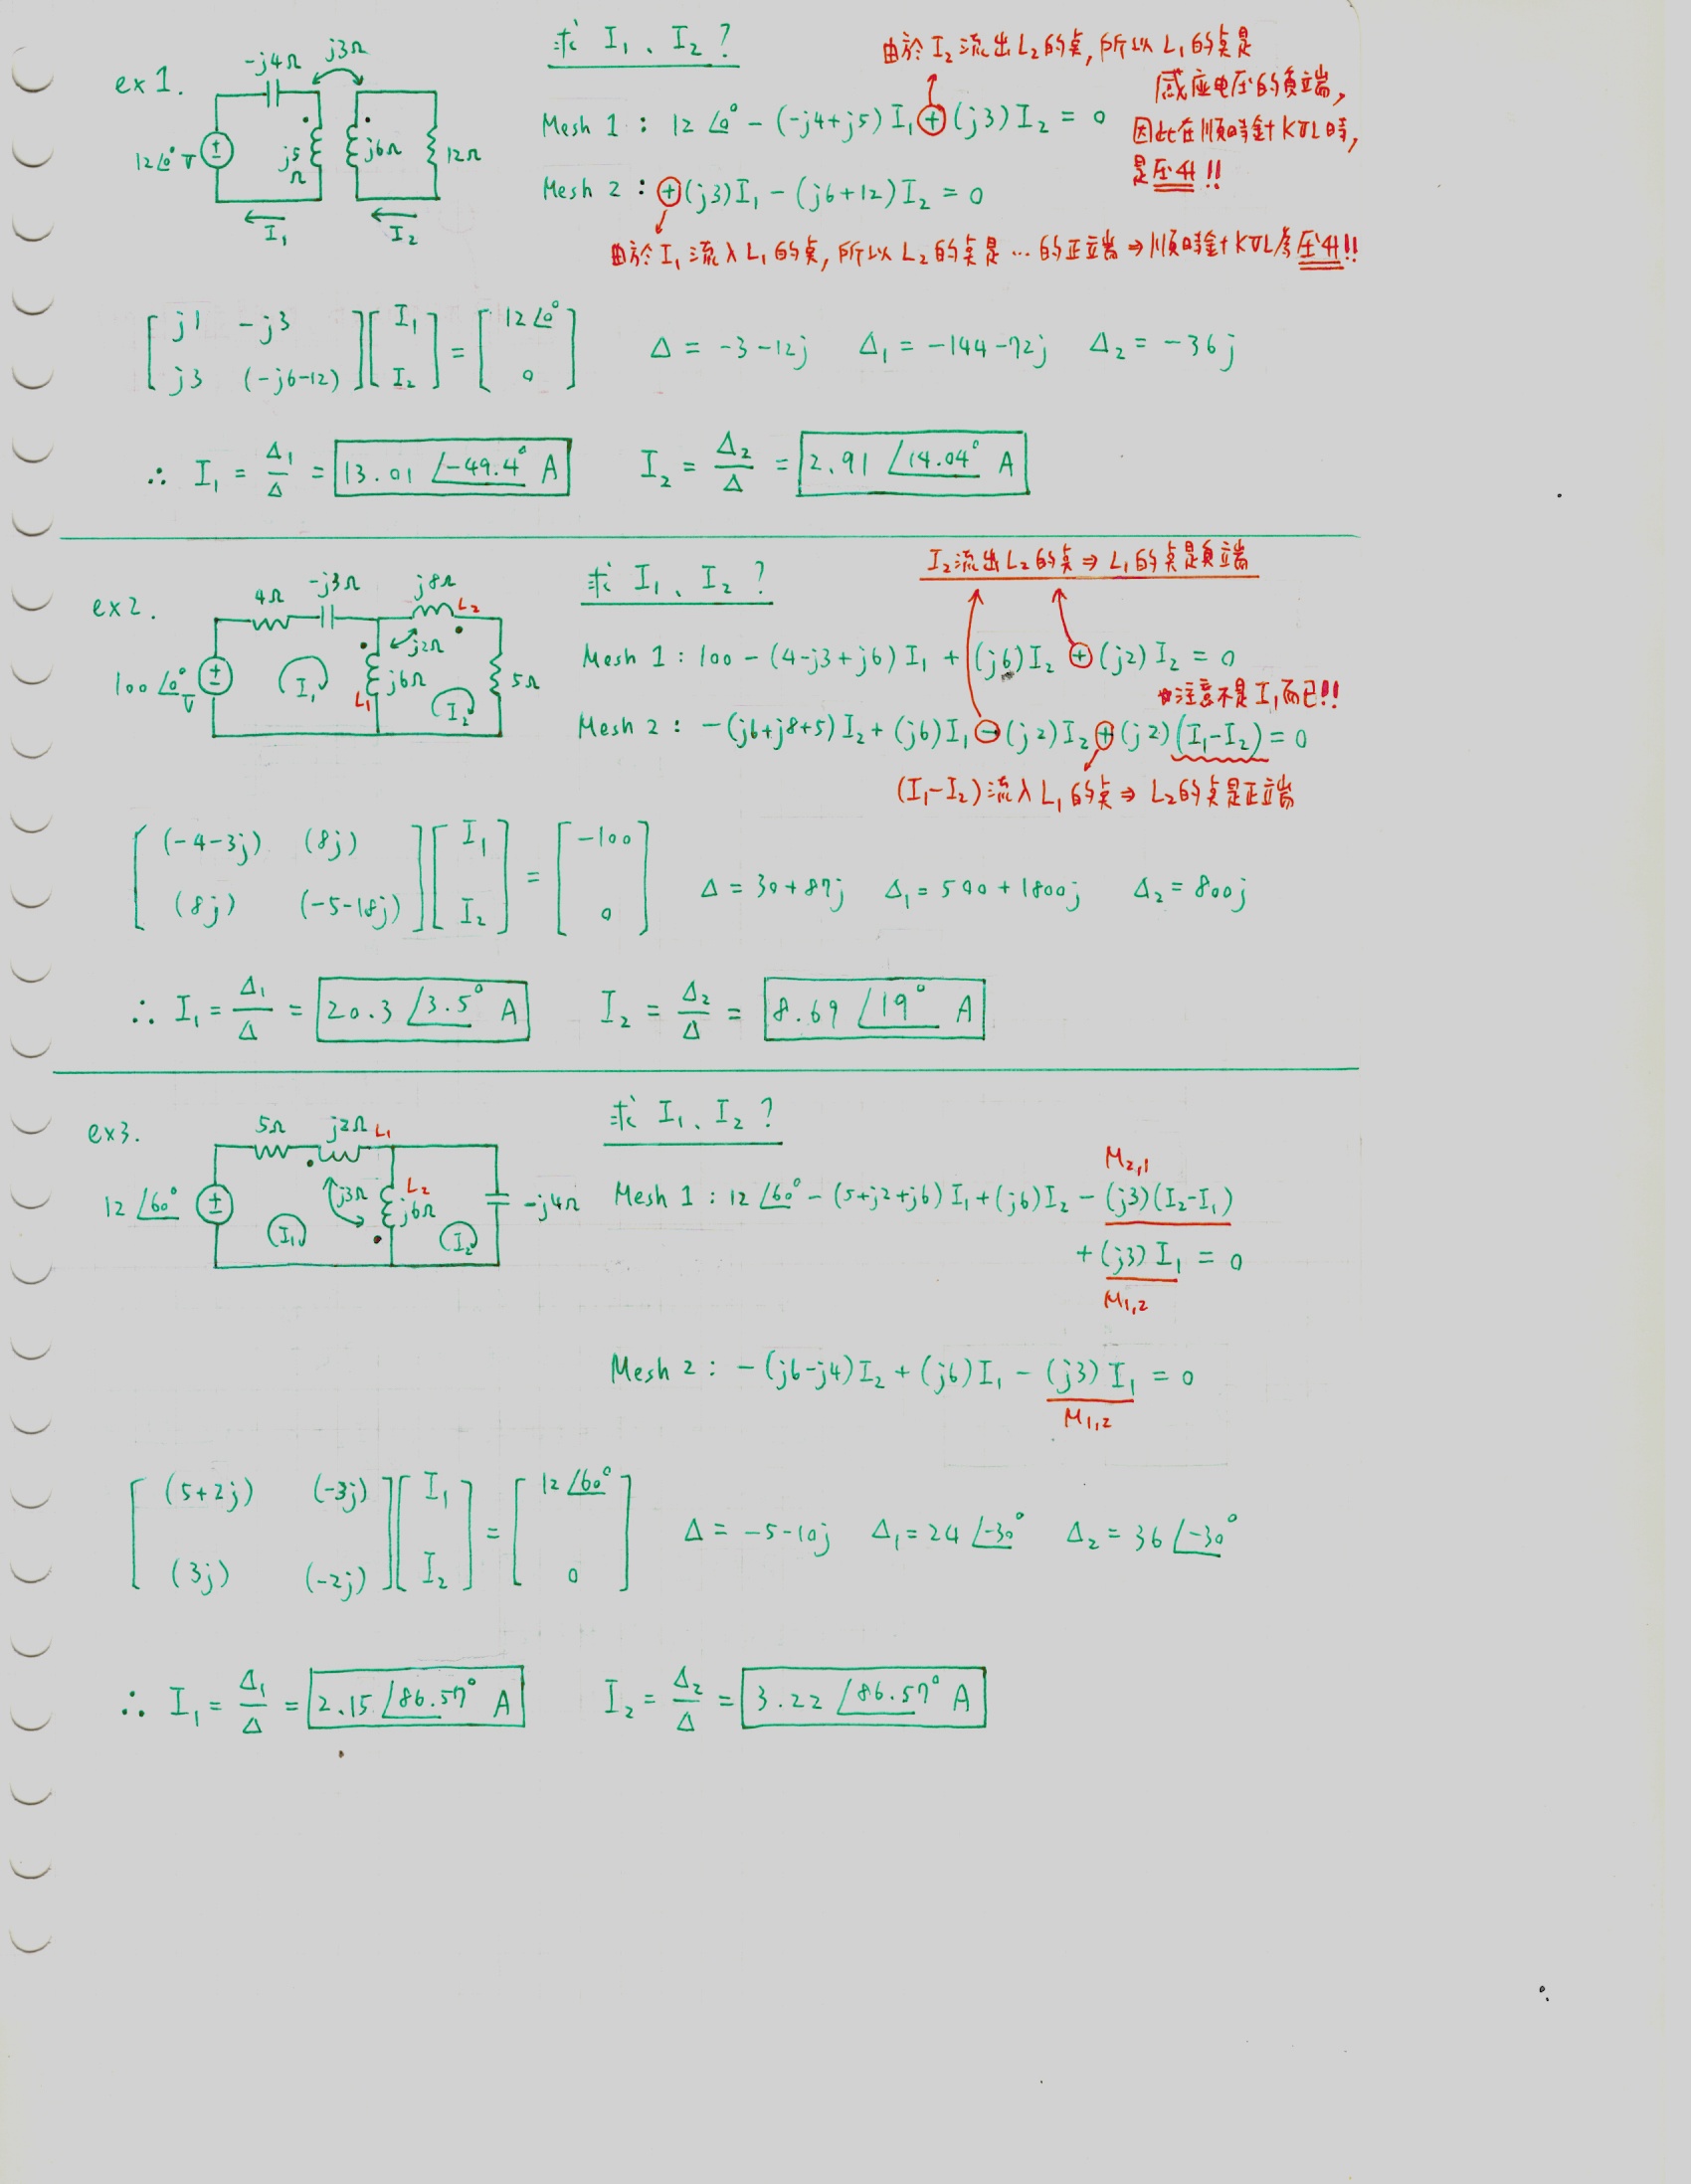 ex 1.
-j4Ω
j3Ω
12∠0° V
j5Ω
j6Ω
12Ω
I₁
I₂
求 I₁、I₂ ?
由於 I₂ 流出 L₂ 的点, 所以 L₁ 的点是
感应电压的負端,
因此在順時針 KVL 時,
是压升!!
Mesh 1 : 12∠0° - (-j4+j5) I₁ + (j3) I₂ = 0
Mesh 2 : +(j3)I₁ - (j6+12) I₂ = 0
由於 I₁ 流入 L₁ 的点, 所以 L₂ 的点是 … 的正端 ⇒ 順時針 KVL 為压升!!
[ j1 -j3 ] [ I₁ ] = [ 12∠0° ]
[ j3 (-j6-12) ] [ I₂ ] [ 0 ]
Δ = -3-12j Δ₁ = -144-72j Δ₂ = -36j
∴ I₁ = Δ₁/Δ = 13.01 ∠-49.4° A I₂ = Δ₂/Δ = 2.91 ∠14.04° A
ex 2.
4Ω
-j3Ω
j8Ω
L₂
100∠0° V
I₁
j2Ω
j6Ω
L₁
I₂
5Ω
求 I₁、I₂ ?
I₂流出 L₂ 的点 ⇒ L₁ 的点是負端
Mesh 1 : 100 - (4-j3+j6) I₁ + (j6)I₂ + (j2) I₂ = 0
*注意不是 I₁ 而已!!
Mesh 2 : -(j6+j8+5) I₂ + (j6) I₁ - (j2) I₂ + (j2) (I₁-I₂) = 0
(I₁-I₂) 流入 L₁ 的点 ⇒ L₂的点是正端
[ (-4-3j) (8j) ] [ I₁ ] = [ -100 ]
[ (8j) (-5-18j) ] [ I₂ ] [ 0 ]
Δ = 30+87j Δ₁ = 500+1800j Δ₂ = 800j
∴ I₁ = Δ₁/Δ = 20.3 ∠3.5° A I₂ = Δ₂/Δ = 8.69 ∠19° A
ex3.
5Ω
j2Ω
L₁
12∠60°
j3Ω
L₂
j6Ω
-j4Ω
I₁
I₂
求 I₁、I₂ ?
M₂,₁
Mesh 1 : 12∠60° - (5+j2+j6) I₁ + (j6) I₂ - (j3) (I₂-I₁)
+ (j3) I₁ = 0
M₁,₂
Mesh 2 : -(j6-j4) I₂ + (j6) I₁ - (j3) I₁ = 0
M₁,₂
[ (5+2j) (-3j) ] [ I₁ ] = [ 12∠60° ]
[ (3j) (-2j) ] [ I₂ ] [ 0 ]
Δ = -5-10j Δ₁ = 24∠-30° Δ₂ = 36∠-30°
∴ I₁ = Δ₁/Δ = 2.15 ∠86.57° A I₂ = Δ₂/Δ = 3.22 ∠86.57° A